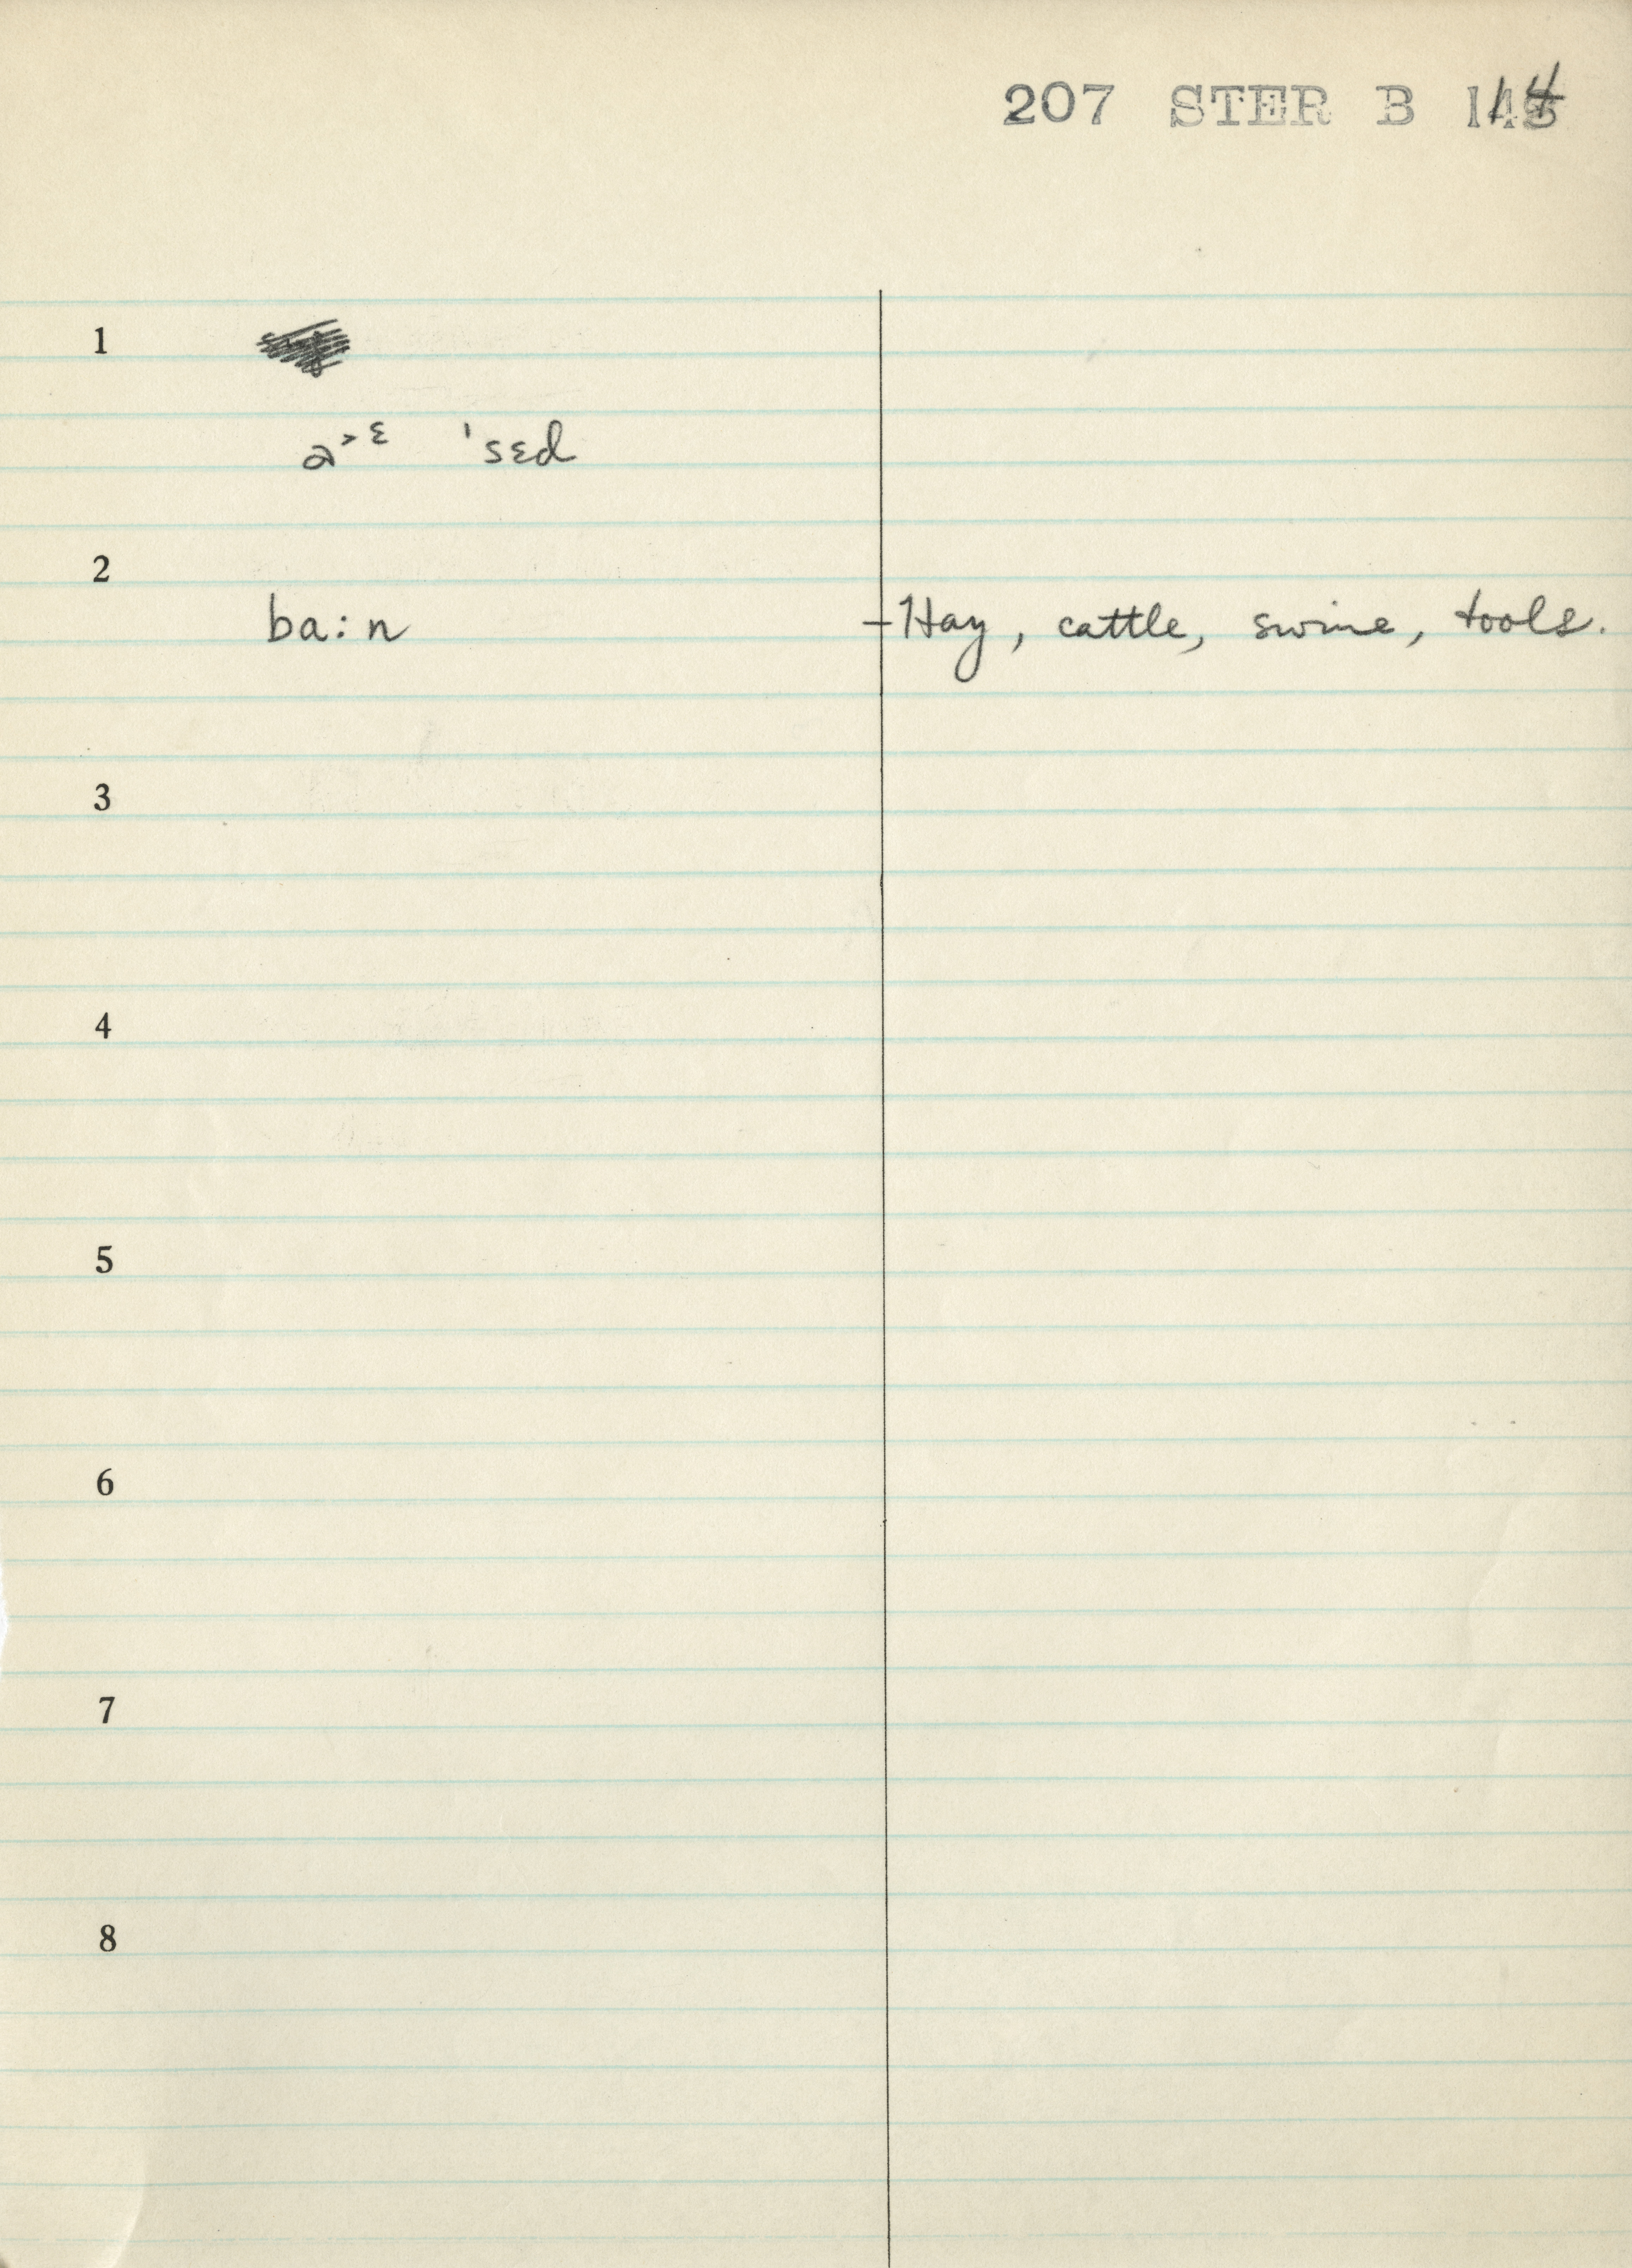 207 STER B 14
1
a˃ᵋ 'sɛd
2
ba:n – Hay, cattle, swine, tools.
3
4
5
6
7
8